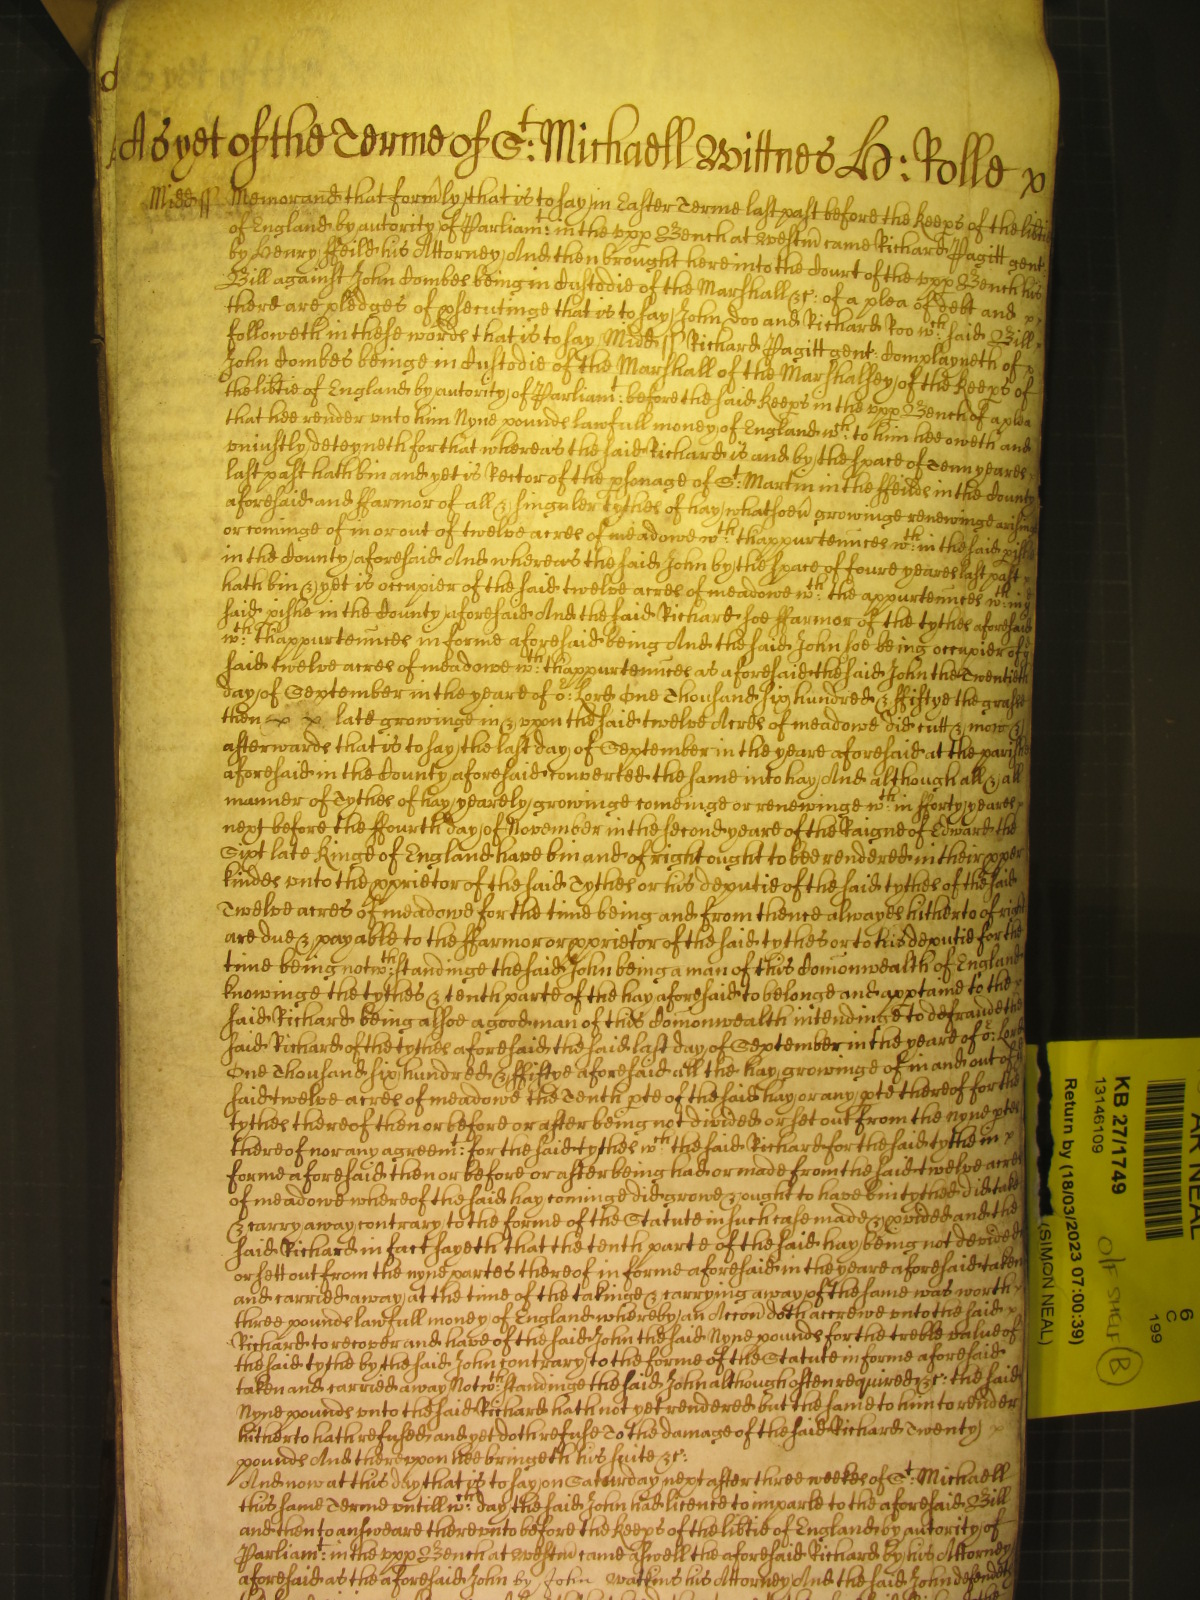 As yet of the Terme of St: Michaell Wittnes H: Rolle
Midd ss Memorand that formly that is to say in Easter Terme last past before the Keeps of the libtie
of England by autority of Parliamt: in the vpp Bench at Westm came Richard Pagitt gent
by Henry ffeild his Attorney And then brought here into the Court of the vpp Bench his
Bill against John Combes being in Custodie of the Marshall &c: of a plea of debt and
there are pledges of psecutinge that is to say John Doo and Richard Roo wch: said Bill
followeth in these words that is to say Midd ss Richard Pagitt gent: Complayneth of
John Combes beinge in Custodie of the Marshall of the Marshalsey of the Keeps of
the libtie of England by autority of Parliamt: before the said Keeps in the vpp Bench of a plea
that hee render vnto him Nyne pounds lawfull money of England wch: to him hee oweth and
vniustly deteyneth for that whereas the said Richard is and by the space of Tenn yeares
last past hath bin and yet is Rector of the psonage of St: Martin in the ffeilds in the County
aforesaid and ffarmor of all & singuler tythes of hay whatsoeu growinge renewinge arising
or cominge of in or out of twelve acres of meadowe wth: thappurtennces wth: in the said pishe
in the County aforesaid And whereas the said John by the space of foure yeares last past
hath bin & yet is occupier of the said twelve acres of meadowe wth: the appurtennces wth: in y
said pishe in the County aforesaid And the said Richard soe ffarmor of the tythes aforesaid
wth: thappurtennces in forme aforesaid being And the said John soe being occupier of y
said twelve acres of meadowe wth: thappurtennces as aforesaid the said John the Twentieth
day of September in the yeare of or: Lord One Thousand six hundred & ffiftye the grasse
then late growinge in & vpon the said twelve Acres of meadowe did cutt & mow &
afterwards that is to say the last day of September in the yeare aforesaid at the parishe
aforesaid in the County aforesaid converted the same into hay And although all & all
manner of Tythes of hay yearely growinge comeinge or renewinge wth: in fforty yeares
next before the ffourth day of November in the second yeare of the Raigne of Edward the
Sixt late Kinge of England have bin and of right ought to bee rendered in their pper
kindes vnto the pprietor of the said Tythes or his deputie of the said tythes of the said
Twelve acres of meadowe for the time being and from thence alwayes hitherto of right
are due & payable to the ffarmor or pprietor of the said tythes or to his deputie for the
time being notwth:standinge the said John being a man of this Comonwealth of England
knowinge the tythes & tenth parte of the hay aforesaid to belonge and apptaine to the
said Richard being alsoe a good man of this Comonwealth intendinge to defraud the
said Richard of the tythes aforesaid the said last day of September in the yeare of or: Lord
One Thousand six hundred & ffiftye aforesaid all the hay growinge of in and out of y
said twelve acres of meadowe the Tenth pte of the said hay or any pte thereof for the
tythes thereof then or before or after being not divided or set out from the nyne ptes
thereof nor any agreemt: for the said tythes wth the said Richard for the said tythe in
forme aforesaid then or before or after being had or made from the said twelve acres
of meadowe whereof the said hay cominge did growe & ought to have bin tythed did take
& carry away contrary to the forme of the Statute in such case made & pvided and the
said Richard in fact sayeth that the tenth parte of the said hay being not devided
or sett out from the nyne partes thereof in forme aforesaid in the yeare aforesaid taken
and carried away at the time of the takinge & carrying away of the same was worth
three pounds lawfull money of England whereby an Accon doth accrewe vnto the said
Richard to recover and have of the said John the said Nyne pounds for the treble value of
the said tythe by the said John contrary to the forme of the Statute in forme aforesaid
taken and carried away Notwth:standinge the said John although often required &c: the said
Nyne pounds vnto the said Richard hath not yet rendered but the same to him to render
hitherto hath refused and yet doth refuse To the damage of the said Richard Twenty
pounds And therevpon hee bringeth his suite &c:
And now at this day that is to say on Saturday next after three weekes of St: Michaell
this same Terme vntill wch: day the said John had licence to imparle to the aforesaid Bill
and then to answeare therevnto before the Keeps of the libtie of England by autority of
Parliamt: in the vpp Bench at Westm came aswell the aforesaid Richard by his Attorney
aforesaid as the aforesaid John by John Watkins his Attorney And the said John defendeth
6
C
199
KB 27/1749
13146109
Return by (18/03/2023 07:00:39)
(SIMON NEAL)
O/F SHELF B